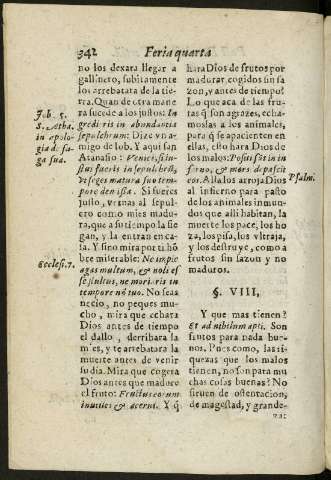 342 Feria quarta
no los dexara llegar a
gallinero, subitamente
los arrebata de la tie-
rra. Quan de otra manera
sucede a los justos: In
gredieris in abundantia
sepulchrum: Dize vn a-
migo de Iob. Y aqui san
Atanasio: Venies, si iu-
stus fueris in sepulchrũ,
vt seges matura suo tem-
pore demissa. Si fueres
justo, vernas al sepul-
cro como mies madu-
ra, que a su tiempo la sie-
gan, y la encierran en ca-
sa. Y sino mira por ti hõ-
bre miserable: Ne impie
agas multum, & noli es
se stultus, ne moriaris in
tempore nõ tuo. No seas
necio, no peques mu-
cho, mira que echara
Dios antes de tiempo
el dallo, derribara la
mies, y te arrebatara la
muerte antes de venir
su dia. Mira que cogera
Dios antes que madure
el fruto: Fructus eorum
inutiles & acerui. Y q̃
Iob. 5.
S. Atha.
in apolo-
gia de fu-
ga sua.
Ecclesi. 7.
hara Dios de frutos por
madurar cogidos sin sa
zon, y antes de tiempo?
Lo que aca de las fru-
tas q̃ son agrazes, echa-
moslas a los animales,
para q̃ se apacienten en
ellas, esto hara Dios de
los malos: Positi sũt in in
ferno, & mors depascet
eos. Alla los arroja Dios
al infierno para pasto
de los animales inmun-
dos que alli habitan, la
muerte los pace, los ho-
za, los pisa, los vltraja,
y los destruye, como a
frutos sin sazon y no
maduros.
Psalm.
§. VIII,
Y que mas tienen?
Et ad nihilum apti. Son
frutos para nada bue-
nos. Pues como, las ri-
quezas que los malos
tienen, no son para mu
chas cosas buenas? No
siruen de ostentacion,
de magestad, y grande-